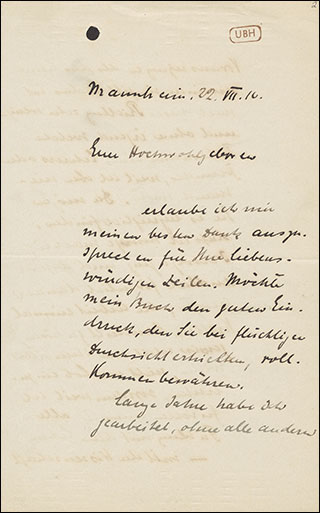 2
UBH
Mannheim, 22. VII. 10.
Euer Hochwohlgeboren
erlaube ich mir
meinen besten Dank auszu-
sprechen für Ihre liebens-
würdigen Zeilen. Möchte
mein Buch den guten Ein-
druck, den Sie bei flüchtiger
Durchsicht erhielten, voll-
kommen bewähren.
Lange Jahre habe ich
gearbeitet, ohne alle andern